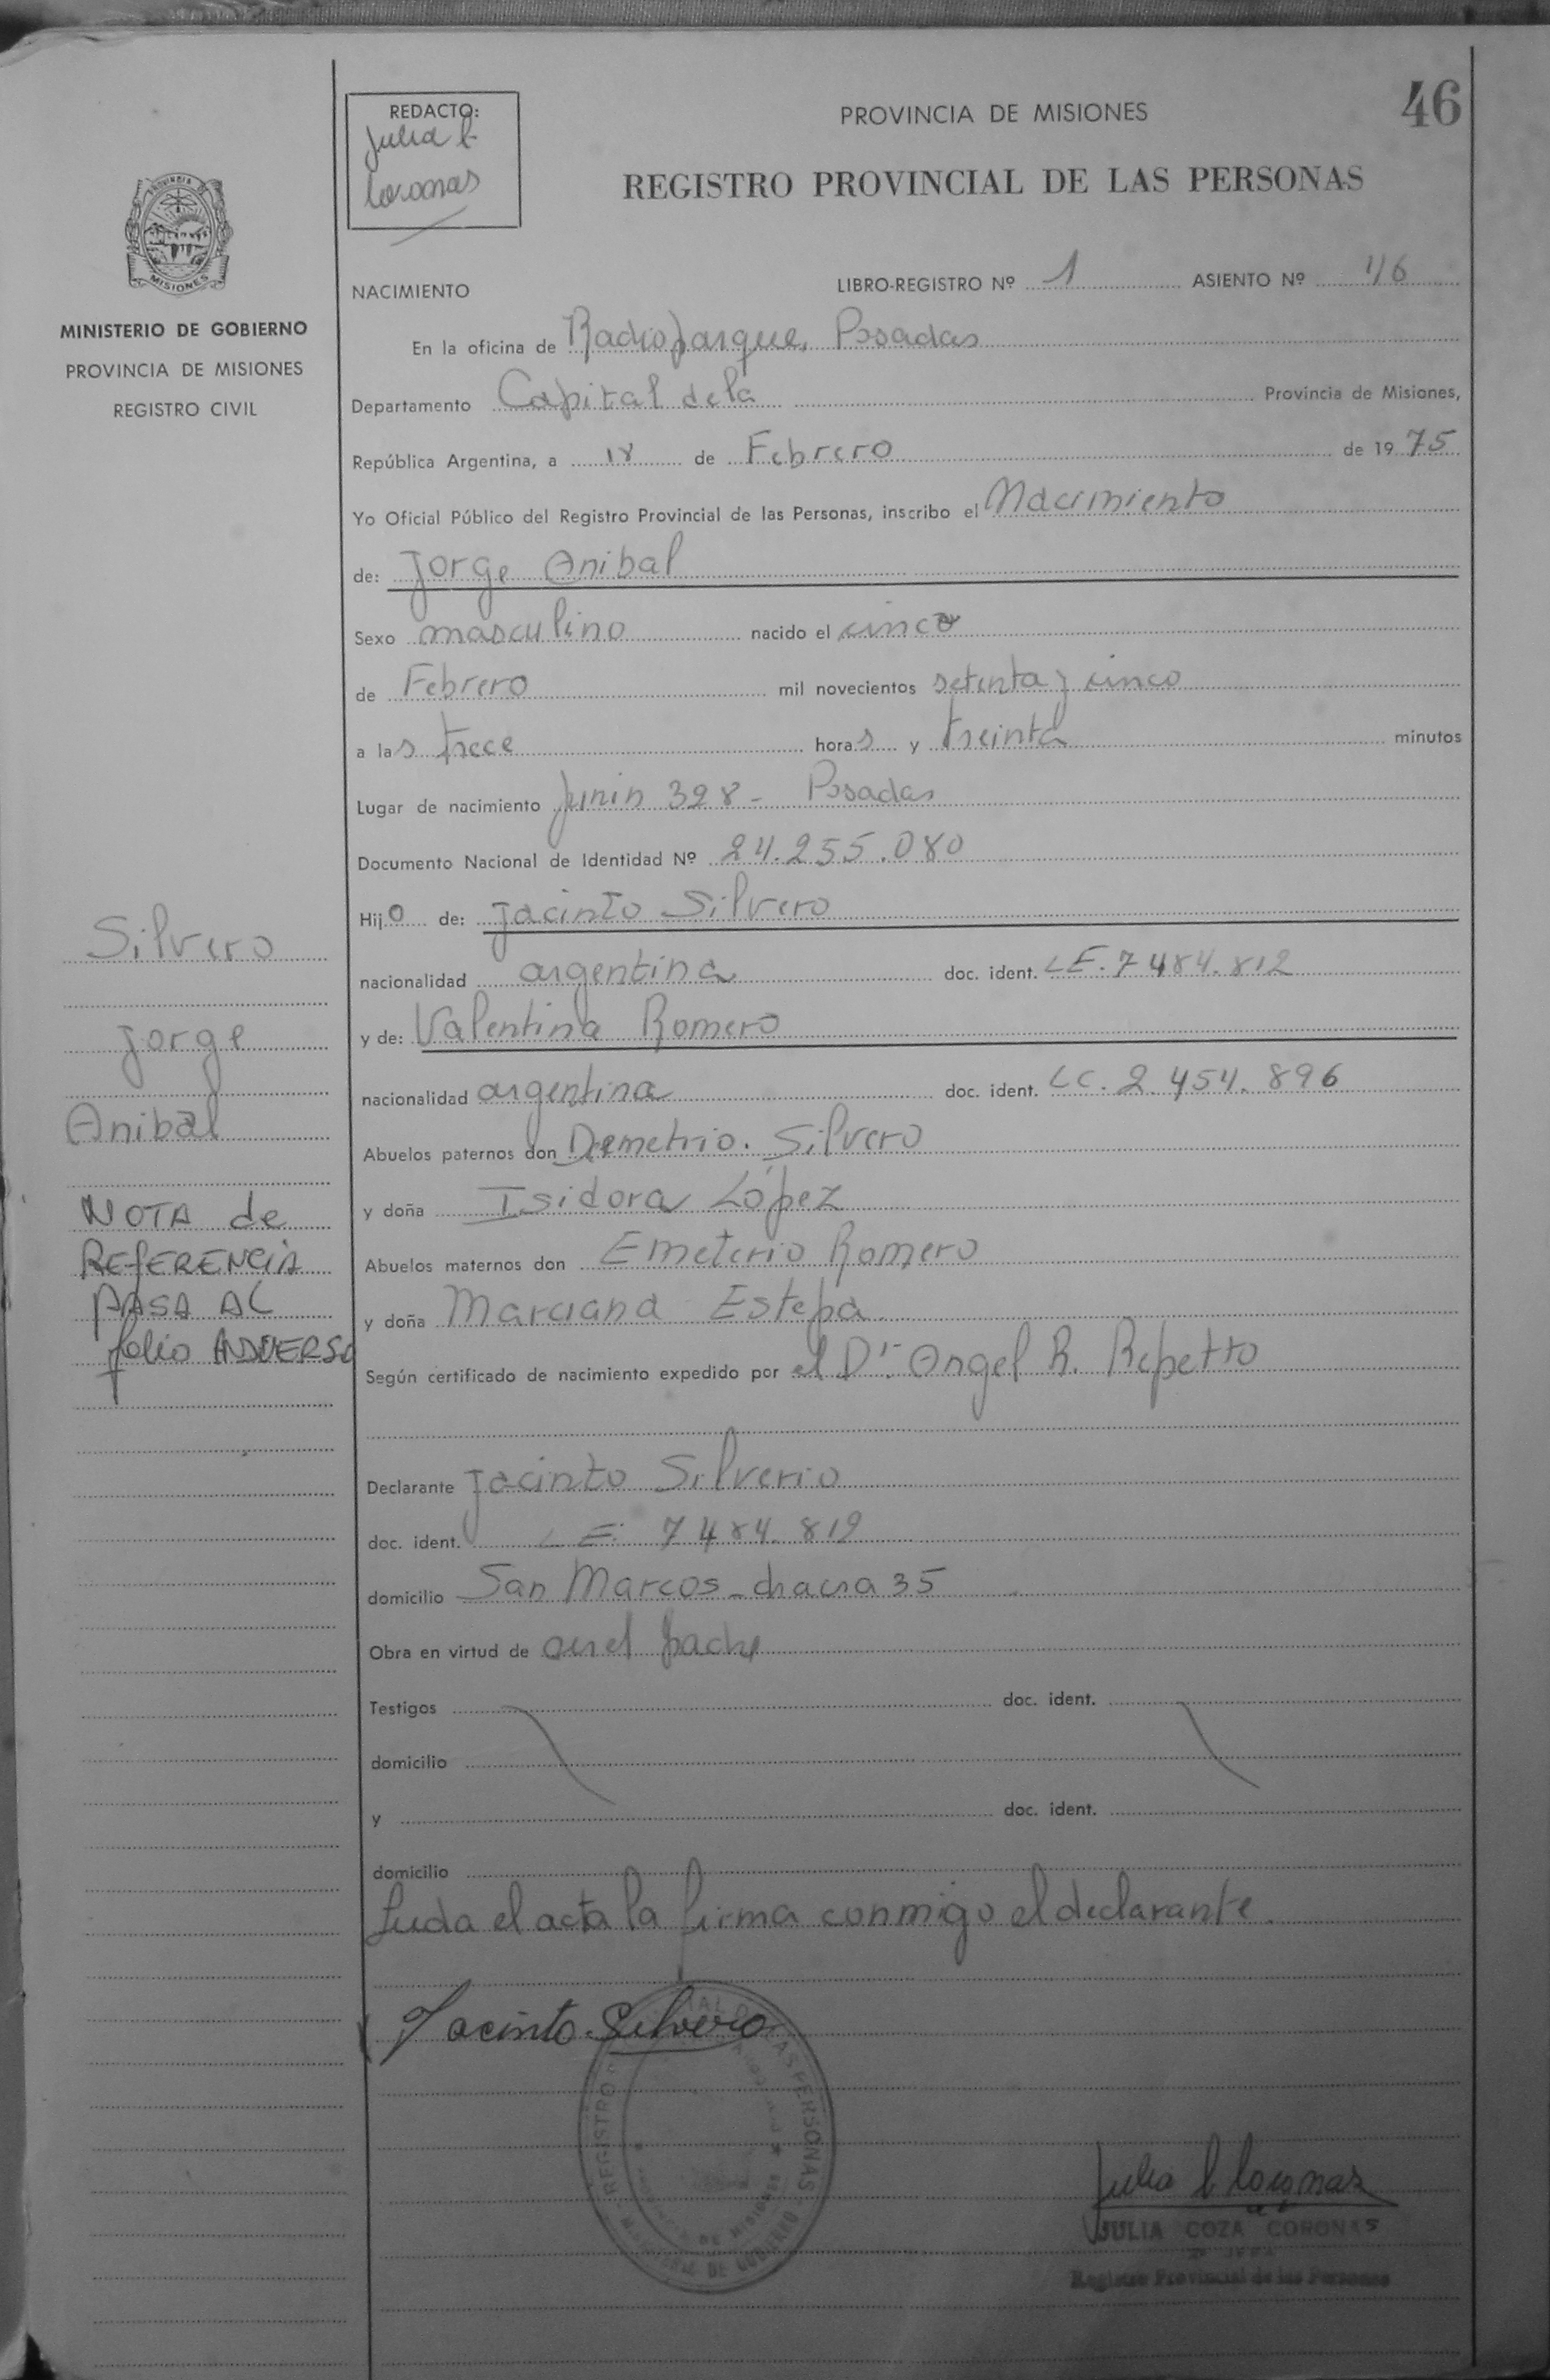 46
REDACTO:
Julia C.
Coronas
PROVINCIA DE MISIONES
REGISTRO PROVINCIAL DE LAS PERSONAS
MISIONES
MINISTERIO DE GOBIERNO
PROVINCIA DE MISIONES
REGISTRO CIVIL
NACIMIENTO LIBRO-REGISTRO Nº 1 ASIENTO Nº 46
En la oficina de Radioparque, Posadas
Departamento Capital dela Provincia de Misiones,
República Argentina, a 18 de Febrero de 1975
Yo Oficial Público del Registro Provincial de las Personas, inscribo el Nacimiento
de: Jorge Anibal
Sexo masculino nacido el cinco
de Febrero mil novecientos setenta y cinco
a las trece horas y treinta minutos
Lugar de nacimiento Junin 398 - Posadas
Documento Nacional de Identidad Nº 24.255.080
Hijo de: Jacinto Silvero
nacionalidad argentina doc. ident. LE. 7484.812
y de: Valentina Romero
nacionalidad argentina doc. ident. LC. 2.454.896
Abuelos paternos don Demetrio. Silvero
y doña Isidora López
Abuelos maternos don Emeterio Romero
y doña Marciana Estepa
Según certificado de nacimiento expedido por el Dr. Angel R. Repetto
Declarante Jacinto Silverio
doc. ident. LE. 7484.812
domicilio San Marcos - chacra 35
Obra en virtud de ser el padre
Testigos doc. ident.
domicilio
y doc. ident.
domicilio
Leida el acta la firma conmigo el declarante.
Jacinto Silvero
Silvero
Jorge
Anibal
NOTA de
REFERENCIA
PASA AL
folio ADVERSO
REGISTRO PERSONAS
Julia C Coronas
JULIA COZA CORONAS
Registro Provincial de las Personas